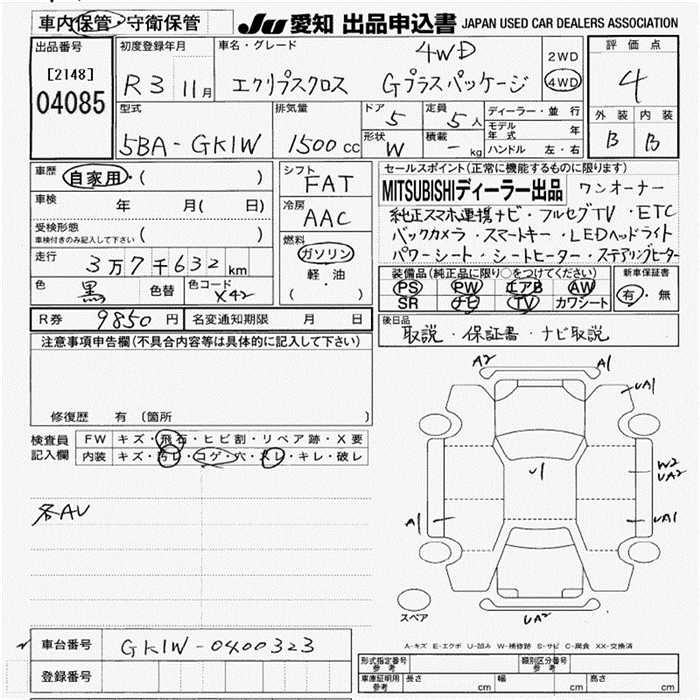 車内保管・守衛保管
JU 愛知 出品申込書 JAPAN USED CAR DEALERS ASSOCIATION
出品番号
[2148]
04085
初度登録年月
R3 11月
車名・グレード
4WD
エクリプスクロス Gプラスパッケージ
2WD
4WD
評価点
4
外装 内装
B B
型式
5BA-GK1W
排気量
1500cc
ドア
5
定員
5人
形状
W
積載
- kg
ディーラー・並行
モデル年式 年
ハンドル 左・右
車歴 自家用・( )
車検 年 月( 日)
受検形態
車検付きのみ記入して下さい ( )
走行 3万7千632km
色 黒 色替 色コード X42
シフト
FAT
冷房
AAC
燃料
ガソリン
軽・油
( )
セールスポイント(正常に機能するものに限ります)
MITSUBISHIディーラー出品 ワンオーナー
純正スマホ連携ナビ・フルセグTV・ETC
バックカメラ・スマートキー・LEDヘッドライト
パワーシート・シートヒーター・ステアリングヒーター
装備品(純正品に限り○をつけてください)
PS PW エアB AW
SR ナビ TV カワシート
新車保証書
有・無
R券 9850円 名変通知期限 月 日
後日品
取説・保証書・ナビ取説
注意事項申告欄(不具合内容等は具体的に記入して下さい)
修復歴 有 (箇所 )
検査員記入欄
FW キズ・飛石・ヒビ割・リペア跡・X要
内装 キズ・汚レ・コゲ・穴・スレ・キレ・破レ
各AU
A2 A1
UA1
U1
W2
UA2
A1
UA1
UA2
スペア
A-キズ E-エクボ U-凹み W-補修跡 S-サビ C-腐食 XX-交換済
車台番号 GK1W-0400323
登録番号
形式指定番号
参考
類別区分番号
参考
車庫証明用
参考
長さ cm 幅 cm 高さ cm